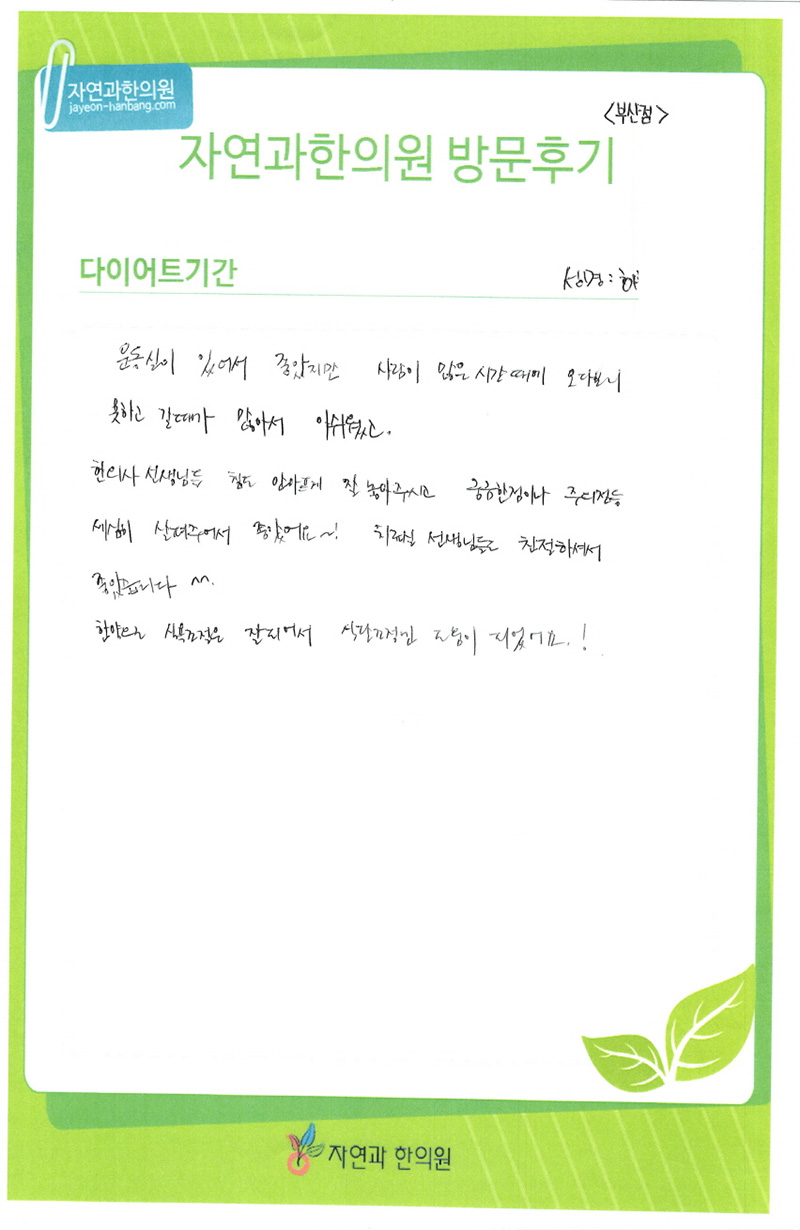 자연과한의원
jayeon-hanbang.com
<부산점>
자연과한의원 방문후기
다이어트기간
성명 : 하
운동실이 있어서 좋았지만 사람이 많은 시간때에 오다보니
못하고 갈때가 많아서 아쉬웠고.
한의사 선생님들 침도 안아프게 잘 놓아주시고 궁금한점이나 주의점등
세심히 살펴주어서 좋았어요~! 치료실 선생님들도 친절하셔서
좋았습니다 ^^.
한약으로 식욕조절은 잘되어서 식단조정에 도움이 되었어요.!
자연과 한의원